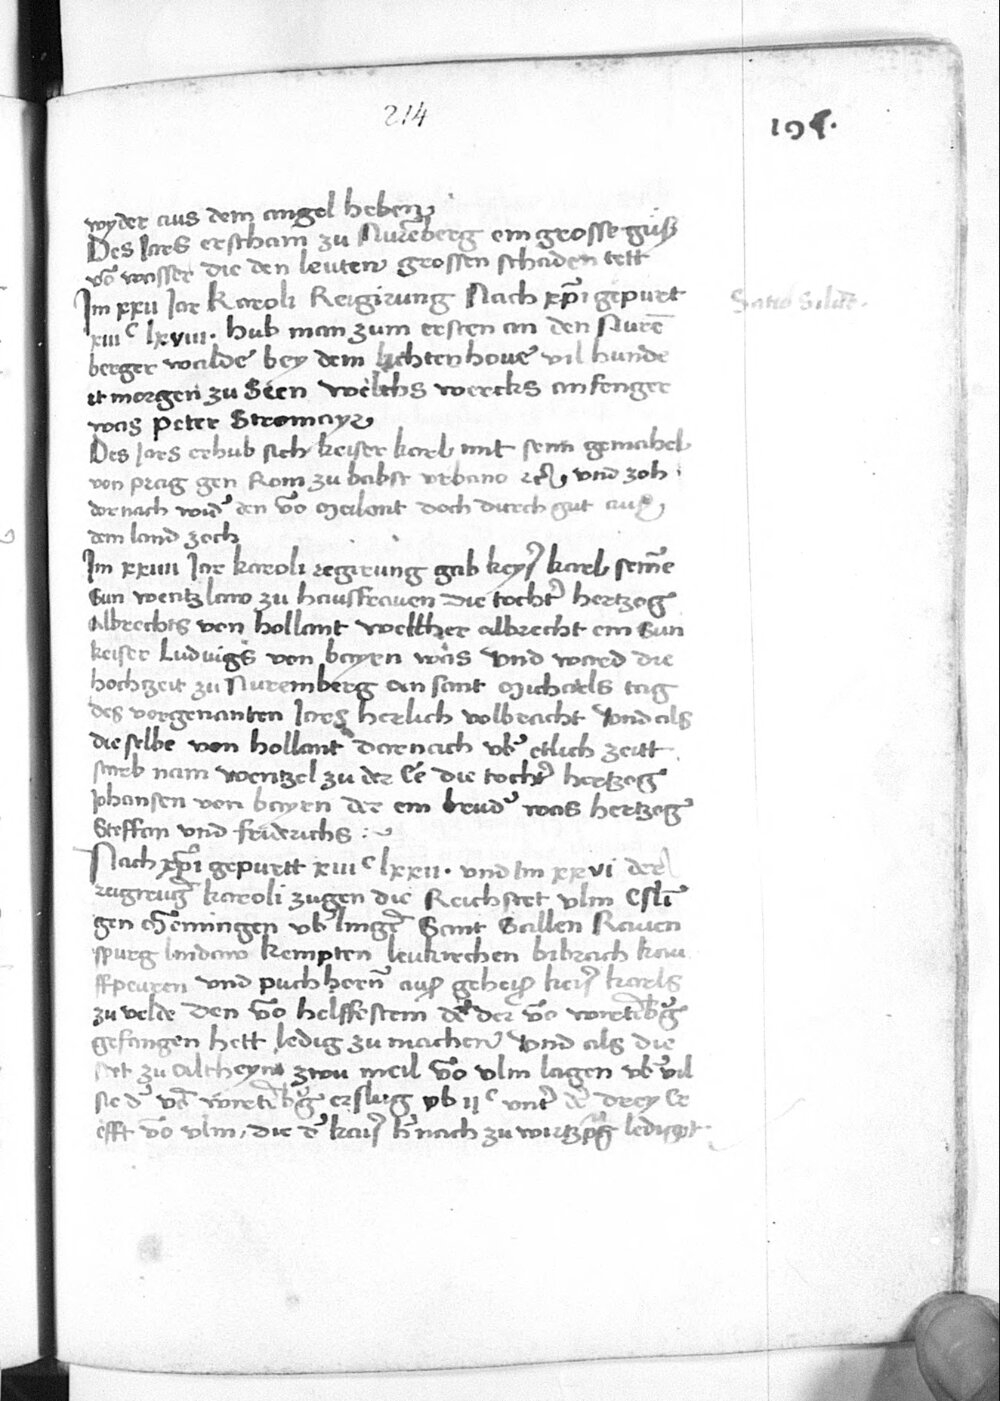 214
195.
wyder aus dem angel heben
Des Jars erscham zu Nur̄eberg ein grosse guß
vō wasser die den leuten grossen schaden tett
Im xxii Jar Karoli Reigirung Nach xp̄i gepurt
xiii c lxviii. hub man zum ersten an den Nurē
berger walde bey dem lichtenhove vil hunde
rt morgen zu Seen welchs wercks anfenger
was peter Stromayr
Des Jars erhub sich keiser karl mit sein gemahel
von prag gen Rom zu babst urbano und zoh
dornach wid' den vō Meilant doch durch gut auß
dem land zoch
Im xxiiii Jar karoli regirung gab keys' karl seine
Sun wentzlaw zu hausfrauen die tocht' hertzog
Albrechts von hollant wellcher albrecht ein Sun
keiser Ludwigs von bayrn was Und ward die
hochtzeit zu Nuremberg an sant Michaels tag
des vorgenanten Jars herlich volbracht Und als
die selbe von hollant darnach ub' etlich zeitt
starb nam wentzel zu der Ee die tocht' hertzog
Johansen von bayrn der ein brud' was hertzog
Steffan und friderichs :~
Nach xp̄i gepurtt xiii c lxxii. und Im xxvi der
regirung karoli zugen die Reichstet ulm Eslī
gen Memingen ub'linge' Sant Gallen Raven
spurg lindaw kempten leukirchen bibrach kau
ffpeuren und puchhorn auß geheiß keis' karls
zu velde Den vō helffestein d' der vō wirtēb'g
gefangen hett ledig zu machen Und als die
stet zu Altheym zwu meil vō ulm lagen ub'vil
sie d' vō wirtēb'g erslug ob ii c unt' d' drey Er
efft vō ulm, die d' kais' h'nach zu wirtzp'g ledigt.